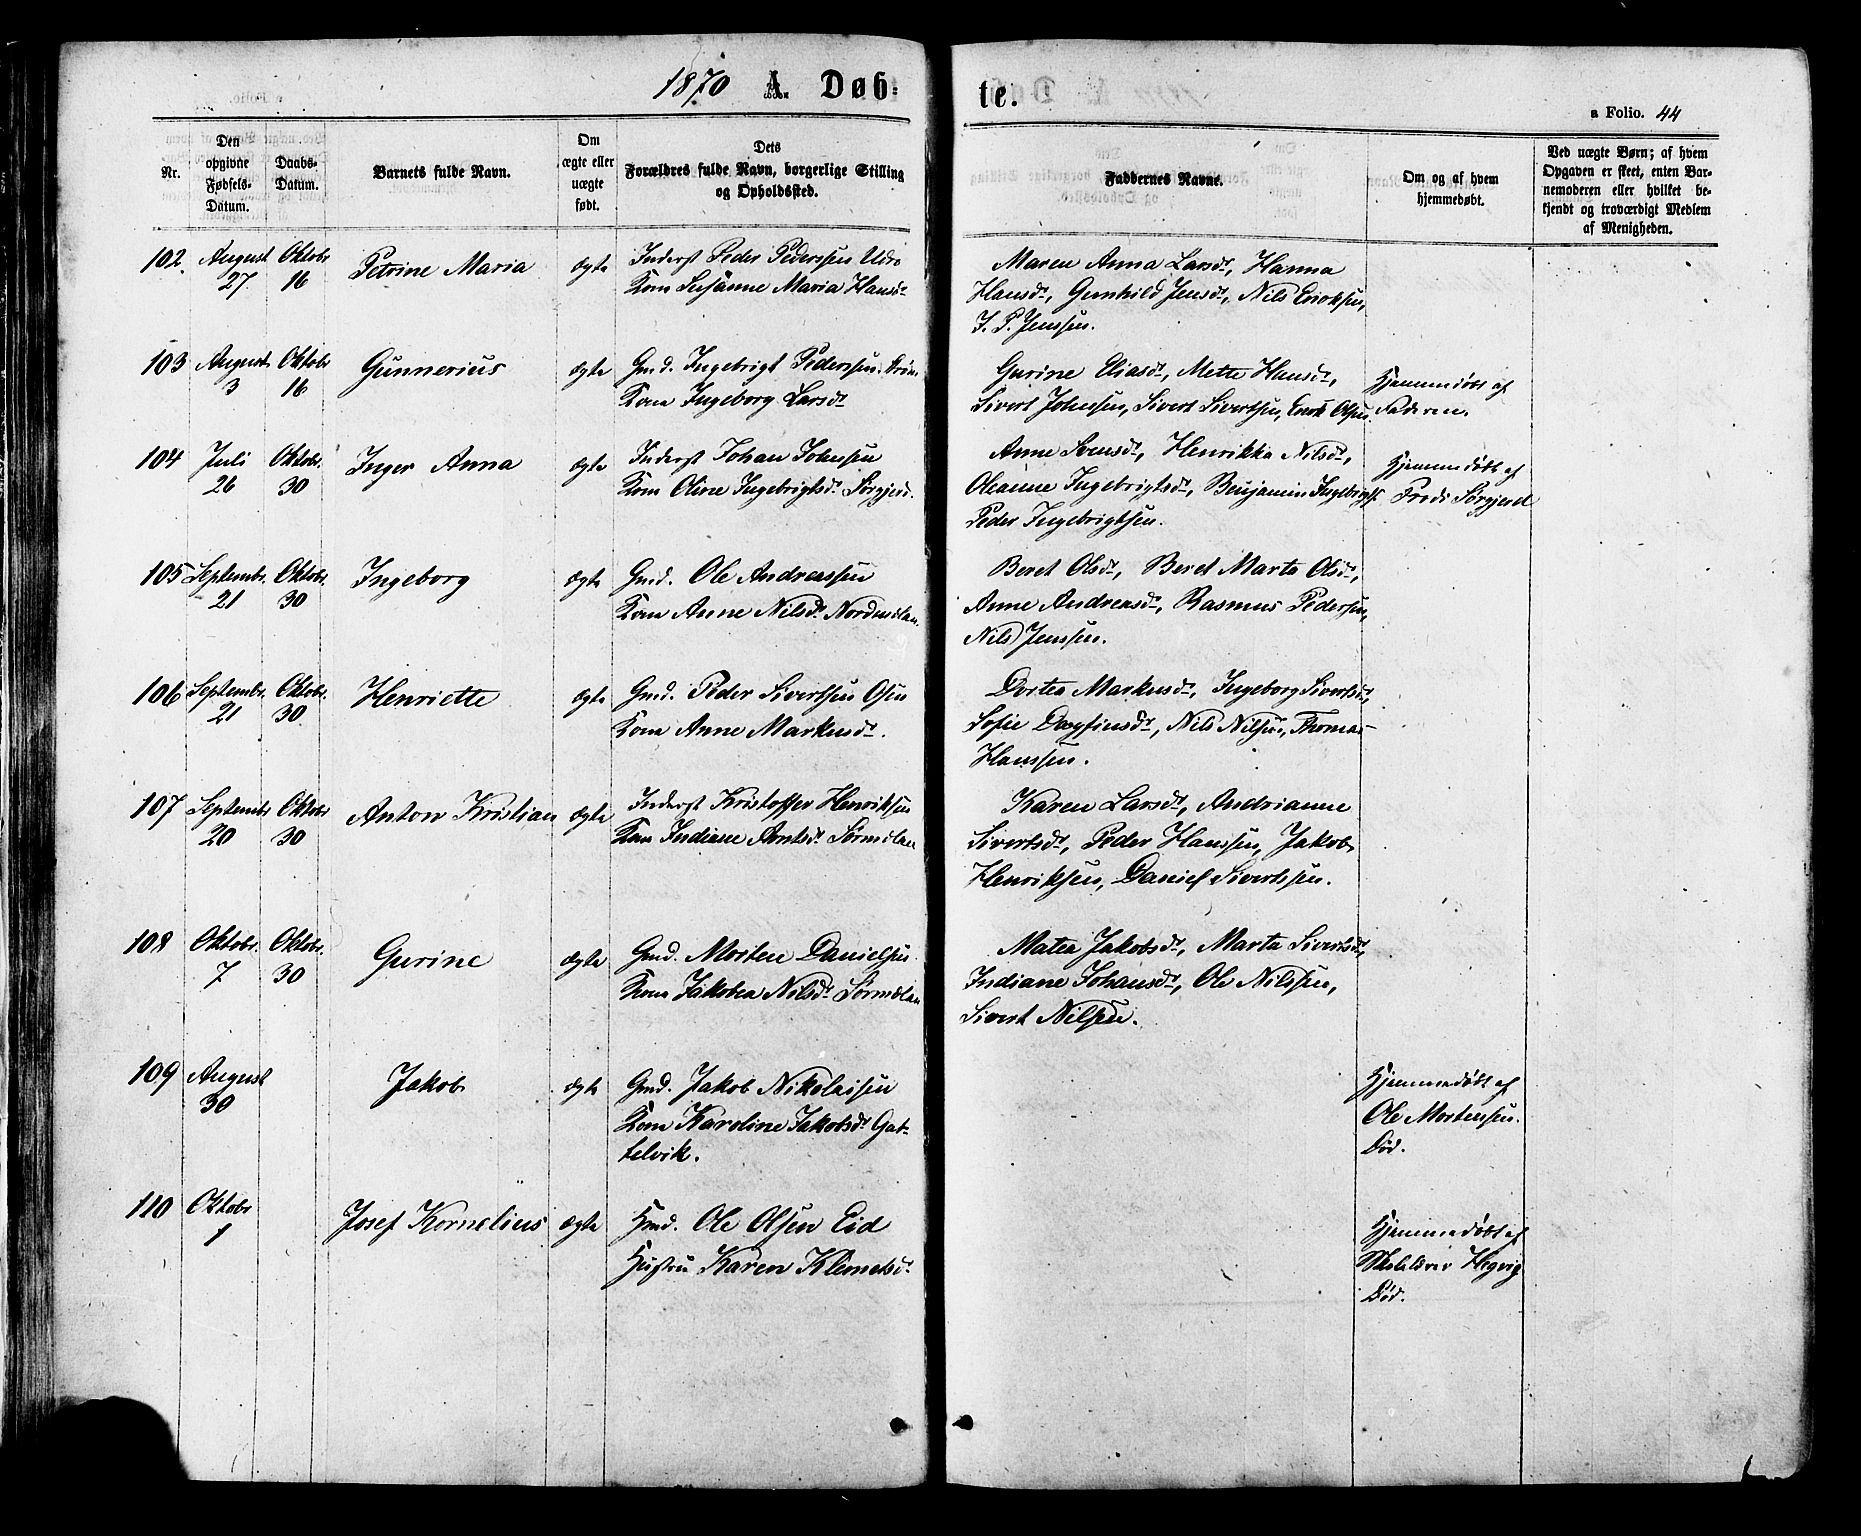 1870 A. Døb-
te.
a Folio. 44
Nr.
Den opgivne Fødsels-Datum.
Daabs-Datum.
Barnets fulde Navn.
Om ægte eller uægte født.
Dets Forældres fulde Navn, borgerlige Stilling og Opholdssted.
Faddernes Navne.
Om og af hvem hjemmedøbt.
Ved uægte Børn; af hvem Opgaven er skeet, enten Bar-nemoderen eller hvilket be-kjendt og troværdigt Medlem af Menigheden.
102. August 27 Oktobr 16 Petrine Maria ægte
Inderst Peder Pederssen
Kone Susanne Maria Hansdt
Maren Anna Larsdt, Hanna
Hansdt, Gunhild Jensdt, Nils Erikssen,
J. P. Jenssen.
103 August 3 Oktobr 16 Gunnerius ægte
Gmd. Ingebrigt Pederssen
Kone Ingeborg Larsdt
Gurine Eliasdt, Mette Hansdt,
Sivert Johnsen, Sivert Sivertsen, Enok Olsen.
Hjemmedøbt af
Faderen.
104 Juli 26 Oktobr. 30 Inger Anna ægte
Inderst Johan Johnsen
Kone Oline Ingebrigtsdt Sørgjerd.
Anne Svensdt, Henrikka Nilsdt,
Oleanne Ingebrigtsdt, Benjamin Ingebrigts.
Peder Ingebrigtsen.
Hjemmedøbt af
Fredr Sørgjerd
105 Septembr. 21 Oktobr. 30 Ingeborg ægte
Gmd. Ole Andreassen
Kone Anne Nilsdt Nordmelan.
Beret Olsdt, Beret Marta Olsdt,
Anne Andreasdt, Rasmus Pedersen,
Nils Jenssen.
106 Septembr. 21 Oktobr. 30 Henriette ægte
Gmd. Peder Sivertsen Osen
Kone Anne Markusdt.
Dortea Markusdt, Ingeborg Sivertsdt,
Sofie Dagfinsdt, Nils Nilsen, Thomas
Hanssen.
107 Septembr 20 Oktobr 30 Anton Kristian ægte
Inderst Kristoffer Henriksen
Kone Indiane Arntsdt Sørmelan
Karen Larsdt, Andrianne
Sivertsdt, Peder Hanssen, Jakob
Henriksen, Daniel Sivertssen.
108 Oktobr. 7 Oktobr. 30 Gurine ægte
Gmd. Morten Danielsen
Kone Jakobea Nilsdt Sørmelan
Matea Jakobsdt, Marta Sivertsdt,
Indiane Johansdt, Ole Nilssen,
Sivert Nilsen.
109 August 30 Jakob ægte
Gmd. Jakob Nikolaisen
Kone Karoline Jakobsdt Gat-
telvik.
Hjemmedøbt af
Ole Mortensen.
Død.
110 Oktobr 1 Josef Kornelius ægte
Hmd. Ole Olsen Eid
Hustru Karen Klemetsdt
Hjemmedøbt af
Hegvig
Død.